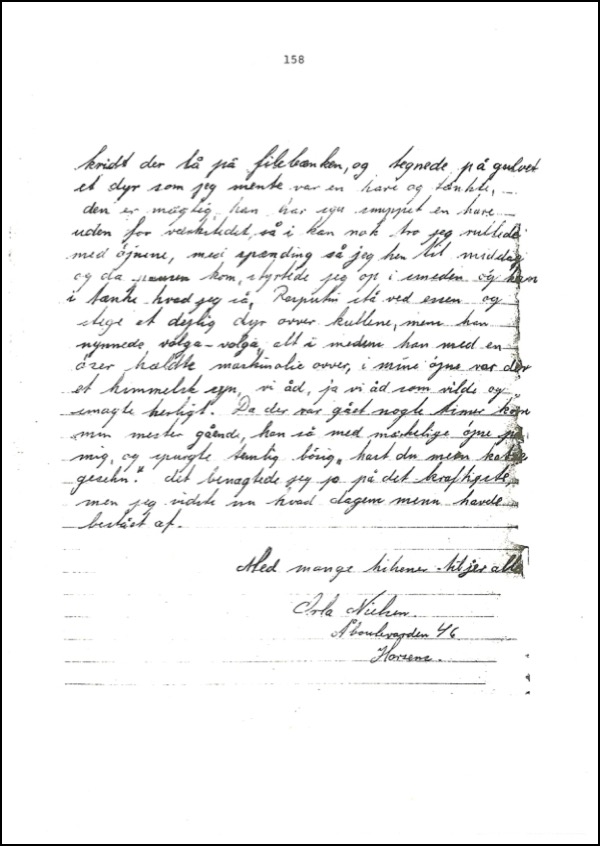 158
kridt der lå på filebænken, og tegnede på gulvet
et dyr som jeg mente var en hare og tænkte,
den er mægtig, han har syn snuppet en hare
uden for værkstedet, så i kan nok tro jeg rullede
med øjnene, med spænding så jeg hen til middag
og da pausen kom, styrtede jeg op i smeden og kan
i tænke hvad jeg så, Rasputin stå ved essen og
stege et dejlig dyr over kullene, mens han
nynnede volga-volga, alt i medens han med en
öser hældte maskinolie over, i mine øjne var der
et himmelsk syn, vi åd, ja vi åd som vilde og
smagte herligt. Da der var gået nogle timer kom
min mester gående, han så med mærkelige øjne på
mig, og spurgte temlig bösig "hast du meen katze
gesehn." det benægtede jeg jo på det kraftigste,
men jeg vidste nu hvad dagem menu havde
bestået af.
Med mange hilsener til jer alle
Orla Nielsen.
Åboulevarden 46
Horsens.